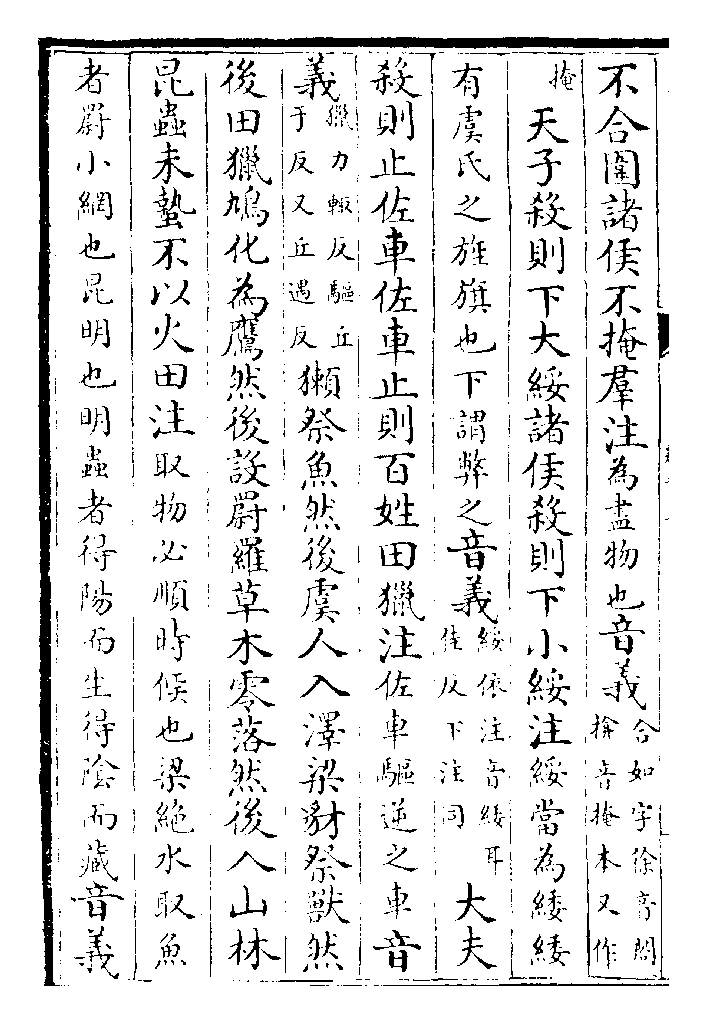 不合圍諸侯不掩羣注為盡物也音義合如字徐音閤揜音掩本又作
掩天子殺則下大綏諸侯殺則下小綏注綏當為緌緌
有虞氏之旌旗也下謂弊之音義綏依注音緌耳佳反下注同大夫
殺則止佐車佐車止則百姓田獵注佐車驅逆之車音
義獵力輙反驅丘于反又丘遇反獺祭魚然後虞人入澤梁豺祭獸然
後田獵鳩化為鷹然後設罻羅草木零落然後入山林
昆蟲未蟄不以火田注取物必順時候也梁絶水取魚
者罻小網也昆明也明蟲者得陽而生得陰而藏音義